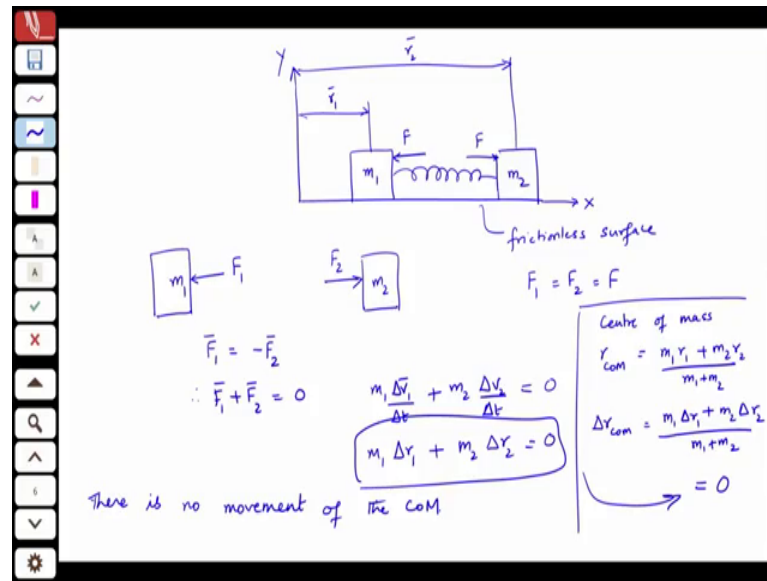 Y
r̄₂
r̄₁
F F
m₁ m₂
x
frictionless surface
m₁ F₁ F₂ m₂
F₁ = F₂ = F
F̄₁ = -F̄₂
∴ F̄₁ + F̄₂ = 0
m₁ Δv̄₁/Δt + m₂ Δv̄₂/Δt = 0
m₁ Δr₁ + m₂ Δr₂ = 0
There is no movement of the CoM
Centre of mass
r_com = (m₁r₁ + m₂r₂)/(m₁+m₂)
Δr_com = (m₁Δr₁ + m₂Δr₂)/(m₁+m₂)
= 0
A
A
6